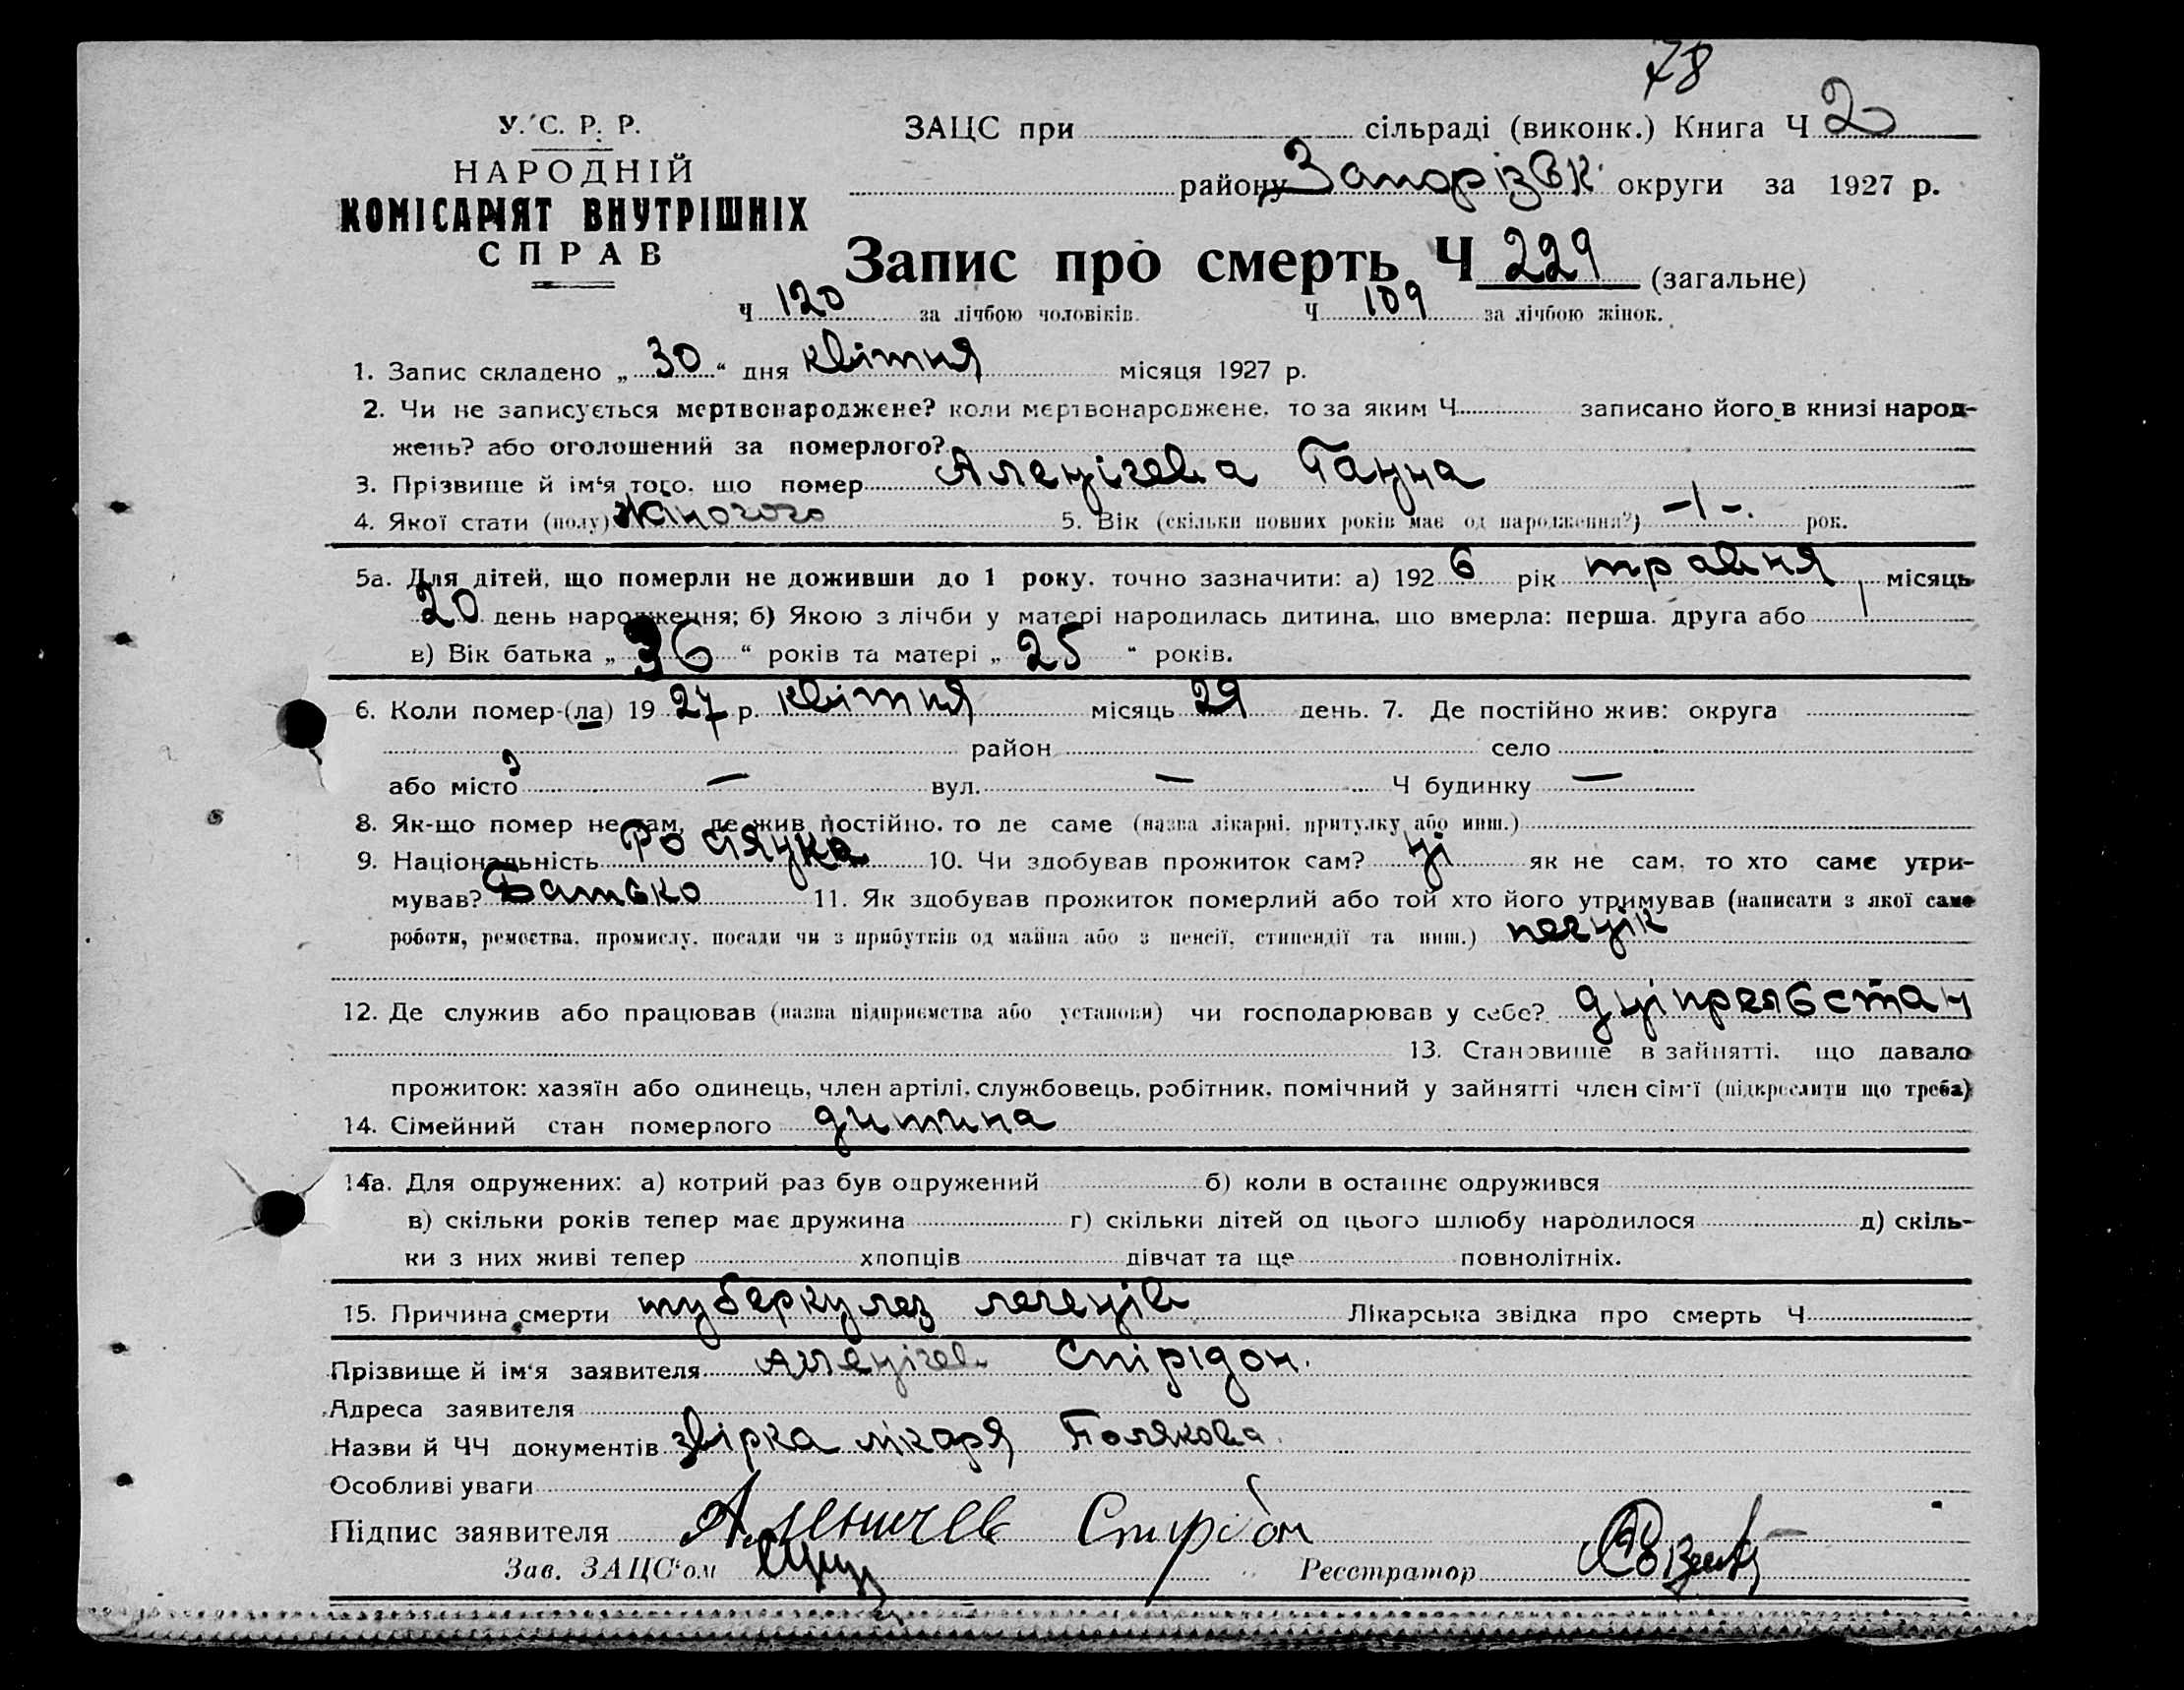 78
У. С. Р. Р.
НАРОДНІЙ
КОМІСАРІЯТ ВНУТРІШНІХ
СПРАВ
ЗАЦС при сільраді (виконк.) Книга Ч 2
району Запорізьк. округи за 1927 р.
Запис про смерть Ч 229 (загальне)
Ч 120 за лічбою чоловіків. Ч 109 за лічбою жінок.
1. Запис складено „ 30 “ дня квітня місяця 1927 р.
2. Чи не записується мертвонароджене? коли мертвонароджене, то за яким Ч записано його в книзі народ-
жень? або оголошений за померлого?
3. Прізвище й ім‘я того, що помер Аленічева Ганна
4. Якої стати (полу) жіночого 5. Вік (скільки повних років має од народження?) -1-. рок.
5а. Для дітей, що померли не доживши до 1 року, точно зазначити: а) 1926 рік травня місяць
20 день народження; б) Якою з лічби у матері народилась дитина, що вмерла: перша, друга або
в) Вік батька „ 36 “ років та матері „ 25 “ років.
6. Коли помер-(ла) 1927 р. квітня місяць 29 день. 7. Де постійно жив: округа
район село
або місто — вул. — Ч будинку —
8. Як-що помер не там, де жив постійно, то де саме (назва лікарні, притулку або инш.)
9. Національність росіянка 10. Чи здобував прожиток сам? ні як не сам, то хто саме утри-
мував? Батько 11. Як здобував прожиток померлий або той хто його утримував (написати з якої саме
роботи, ремества, промислу, посади чи з прибутків од майна або з пенсії, стипендії та инш.) печнік
12. Де служив або працював (назва підприємства або установи) чи господарював у себе? дніпрельстан
13. Становище в зайнятті, що давало
прожиток: хазяїн або одинець, член артілі, службовець, робітник, помічний у зайнятті член сім‘ї (підкреслити що треба)
14. Сімейний стан померлого дитина
14а. Для одружених: а) котрий раз був одружений б) коли в останнє одружився
в) скільки років тепер має дружина г) скільки дітей од цього шлюбу народилося д) скіль-
ки з них живі тепер хлопців дівчат та ще повнолітніх.
15. Причина смерти туберкулез легенів Лікарська звідка про смерть Ч
Прізвище й ім‘я заявителя Аленічев Спірідон.
Адреса заявителя
Назви й ЧЧ документів звірка лікаря Полякова
Особливі уваги
Підпис заявителя Аленичев Спиридон
Зав. ЗАЦС‘ом Реєстратор